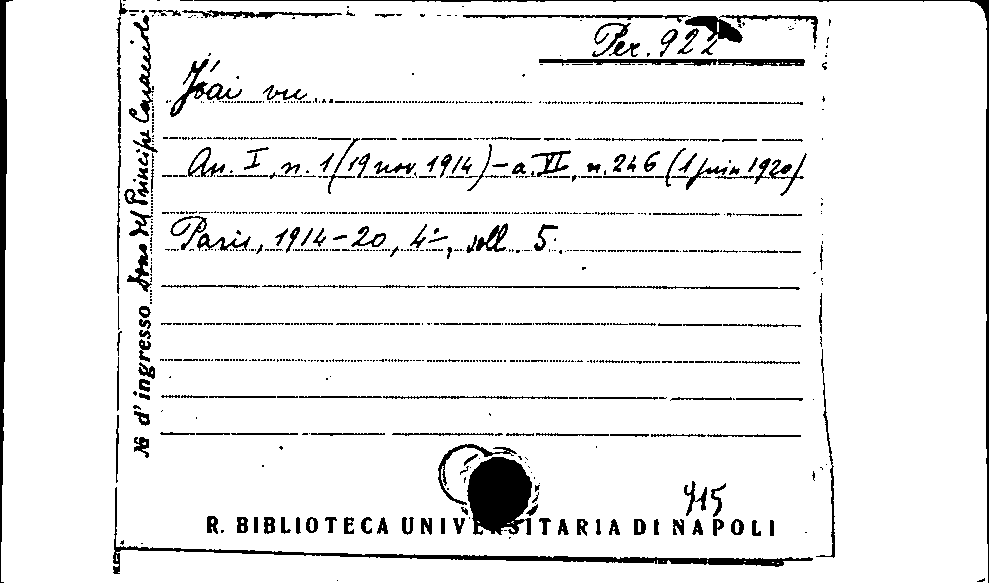 Per. 922
J'ai vu...
An. I, n. 1 (19 nov. 1914) - a. VI, n. 246 (1 juin 1920)
Paris, 1914-20, 4°, voll. 5.
№ d'ingresso Dono del Principe Caracciolo
915
R. BIBLIOTECA UNIVERSITARIA DI NAPOLI